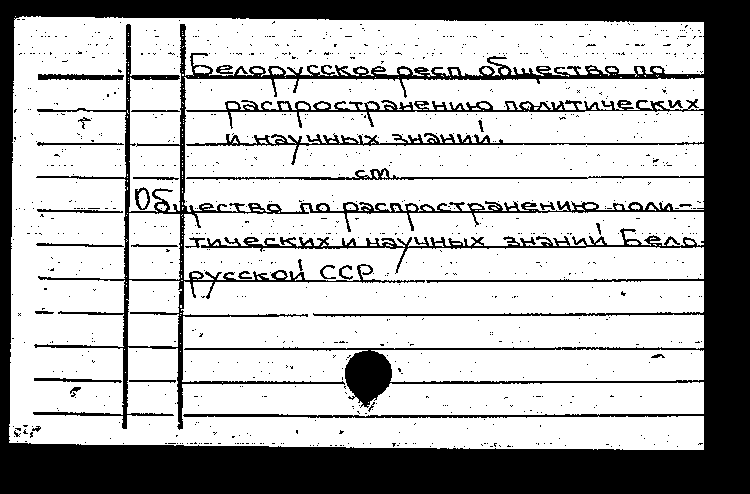 Белорусское респ. общество по
распространению политических
и научных знаний.
см.
Общество по распространению поли-
тических и научных знаний Бело-
русской ССР